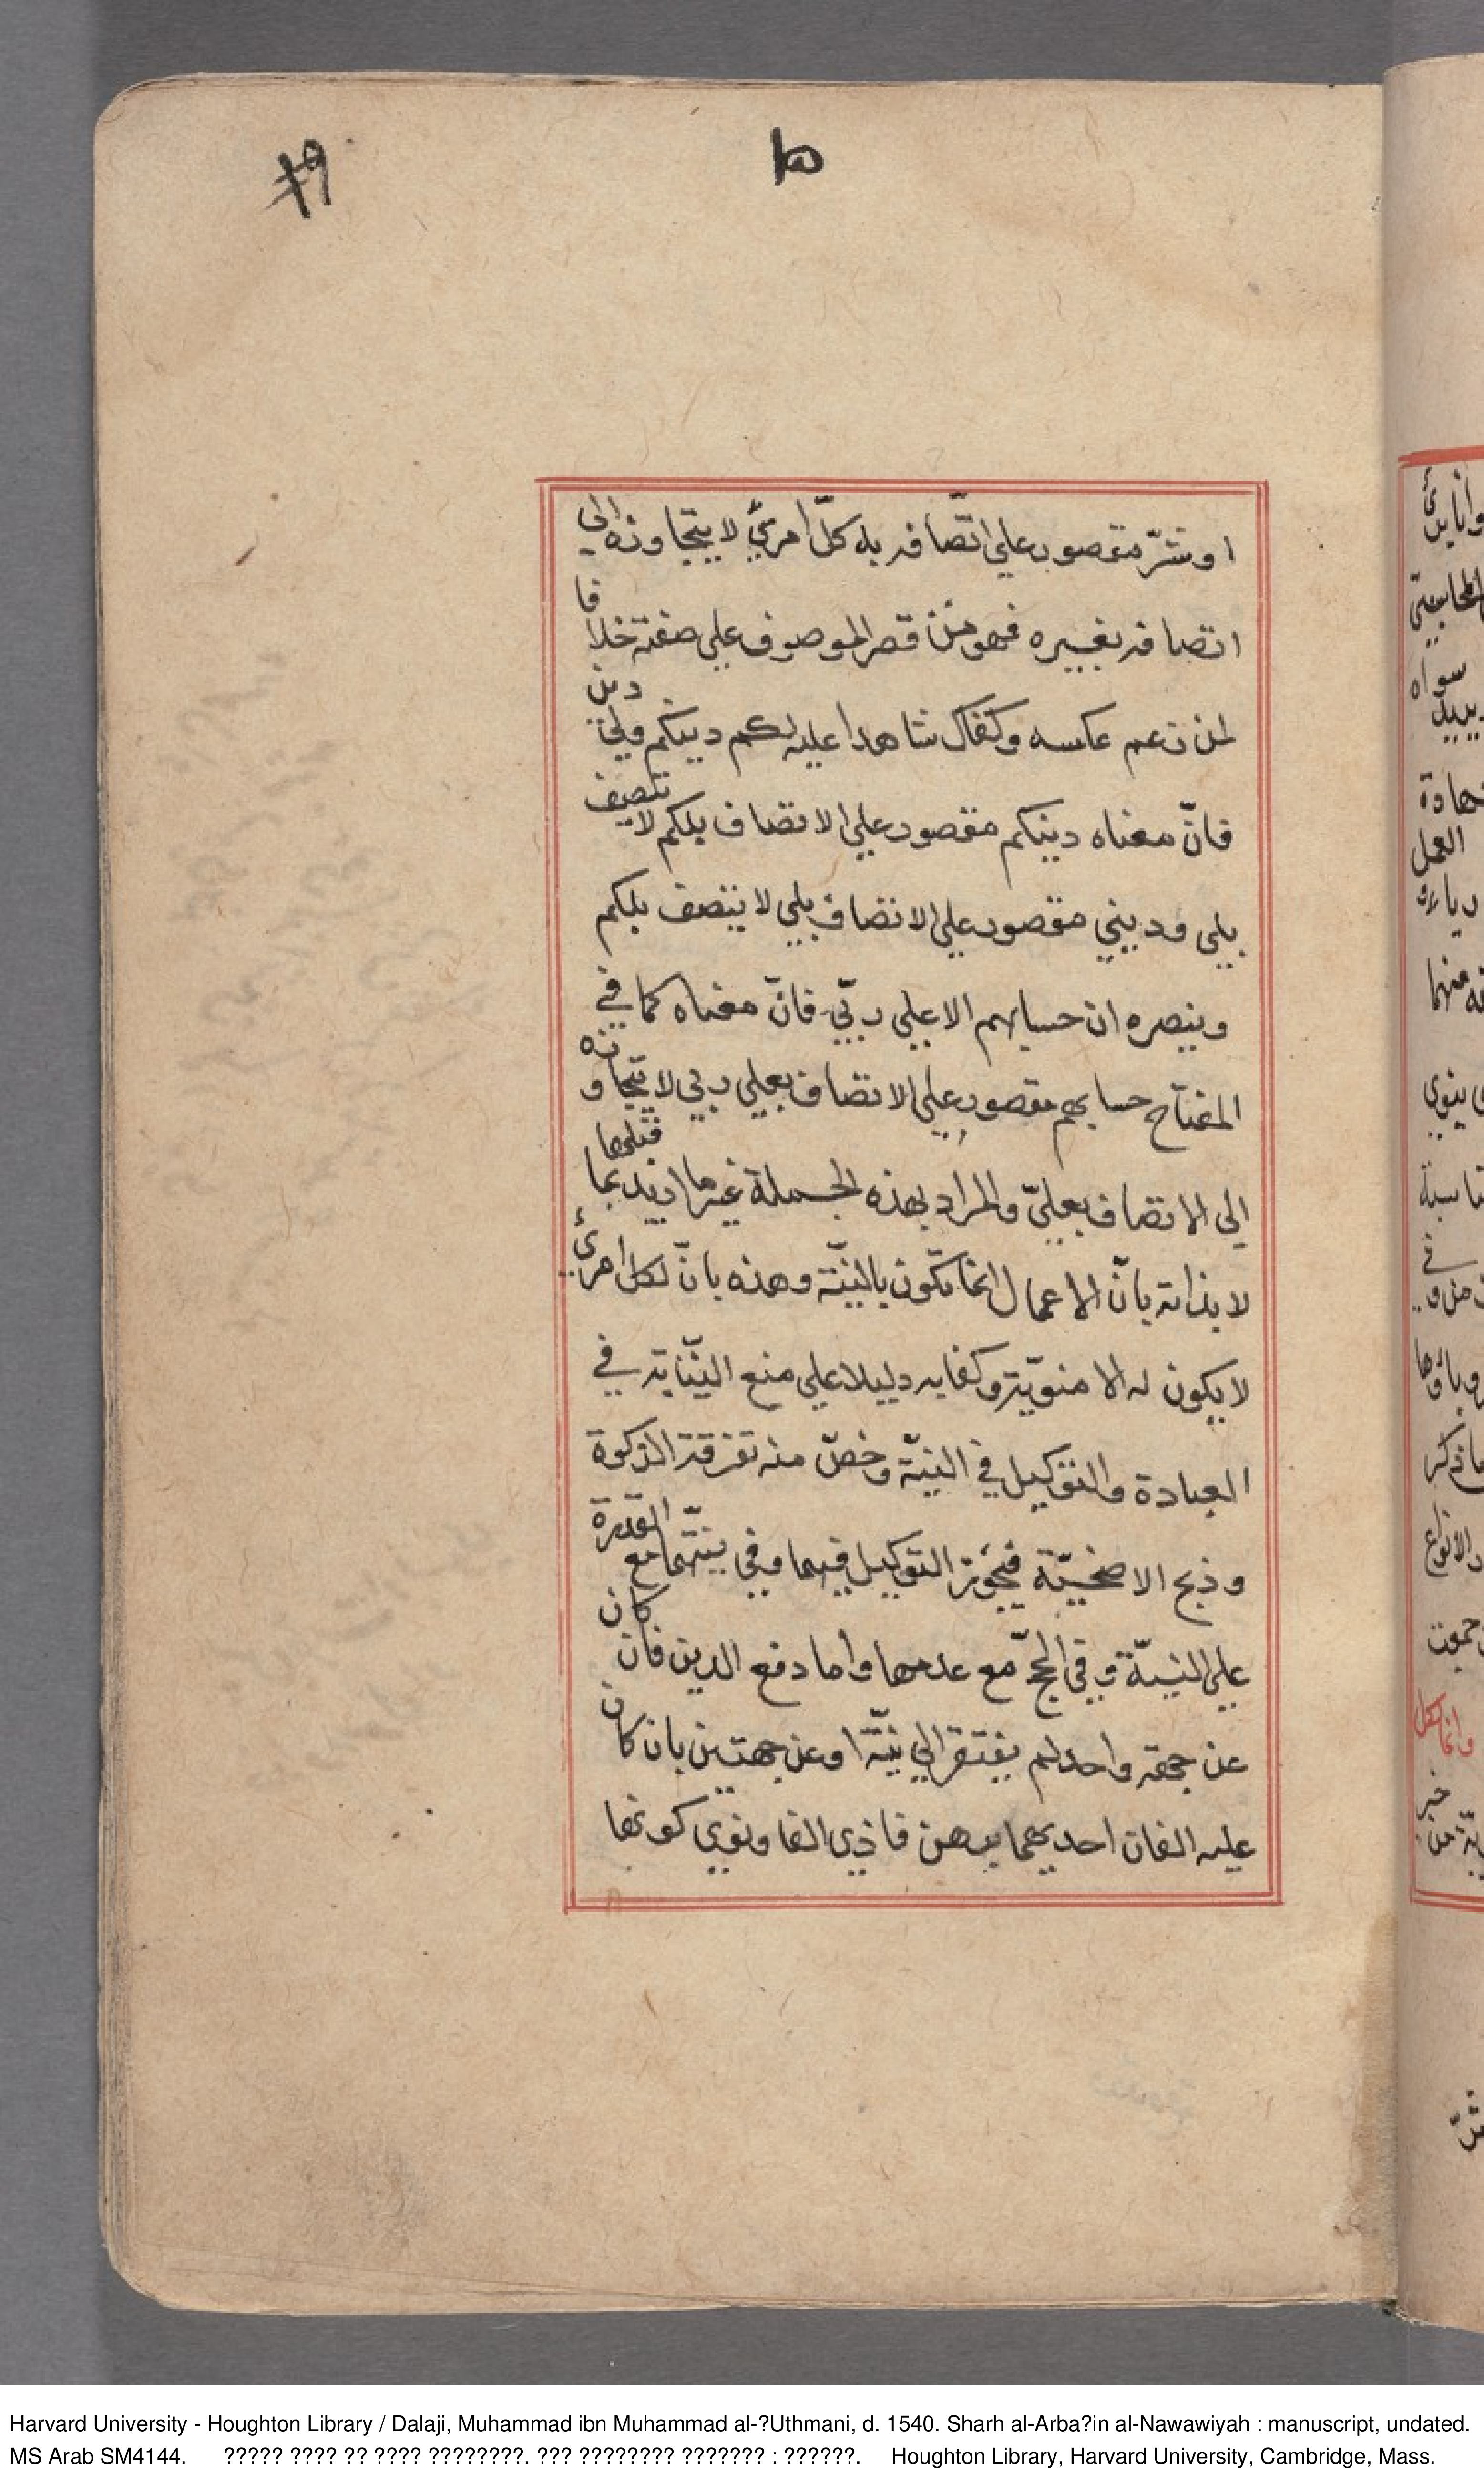 ١٥
١٩
او شرّ مقصور علي اتّصافه به كلّ امرئ لا يتجاوزه الي
اتصافه بغيره فهو من قصر الموصوف علي صفته خلافا
لمن زعم عكسه وكفاك شاهدا عليه لكم دينكم ولي دين
فانّ معناه دينكم مقصور علي الاتصاف بلكم لا يتصف
بلي وديني مقصور علي الاتصاف بلي لا يتصف بلكم
وينصره ان حسابهم الا علي ربّي فانّ معناه كما في
المفتاح حسابهم مقصور علي الاتصاف بعلي ربي لا يتجاوزه
الي الاتصاف بعليّ والمراد بهذه الجملة غير ما اريد بما قبلها
لا يذانه بانّ الاعمال انما تكون بالنيّة وهذه بانّ لكل امرئ
لا يكون له الا منويّه وكفا به دليلا علي منع النيّابة في
العبادة والتوكيل في النيّة وخصّ منه تفرقة الزكوة
وذبح الاضحيّة فيجوز التوكيل فيهما وفي نيّتهما مع القدرة
علي النيّة وفي الحجّ مع عدمها واما دفع الدين فان كان
عن جهة واحد لم يفتقر الي نيّة او عن جهتين بان كان
عليه الفان احديهما برهن فاذي الفا ونوي كونها